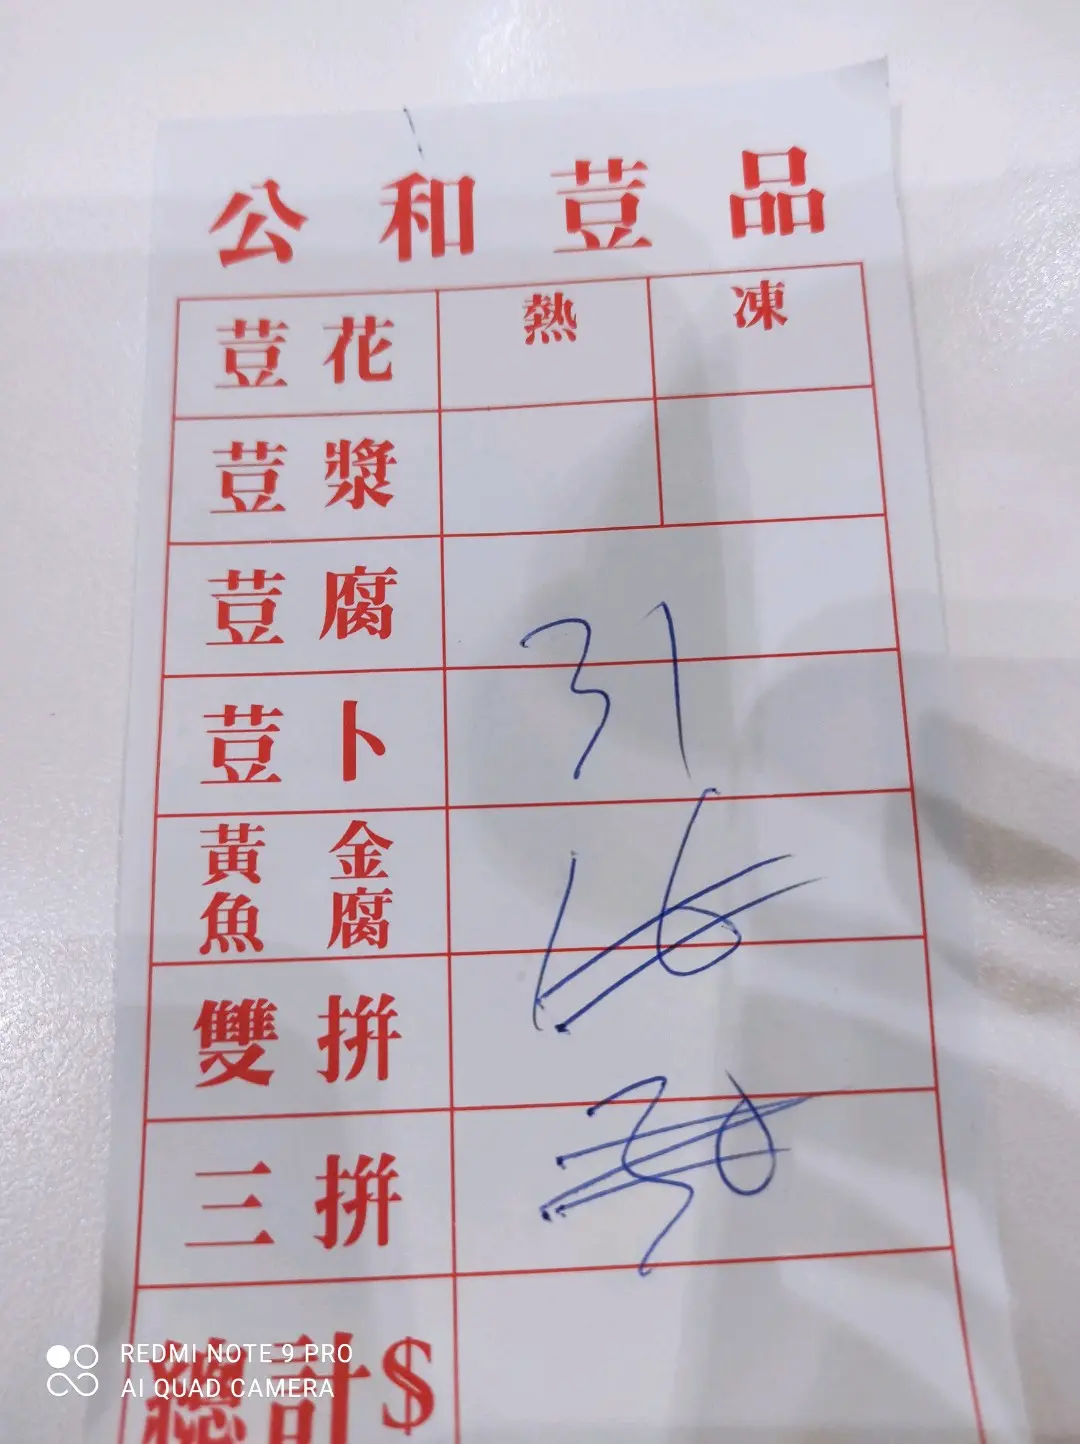 公和荳品
荳花 熱 凍
荳漿
荳腐
31
荳卜
黃金
魚腐
16
雙拼
30
三拼
總計$
REDMI NOTE 9 PRO
AI QUAD CAMERA